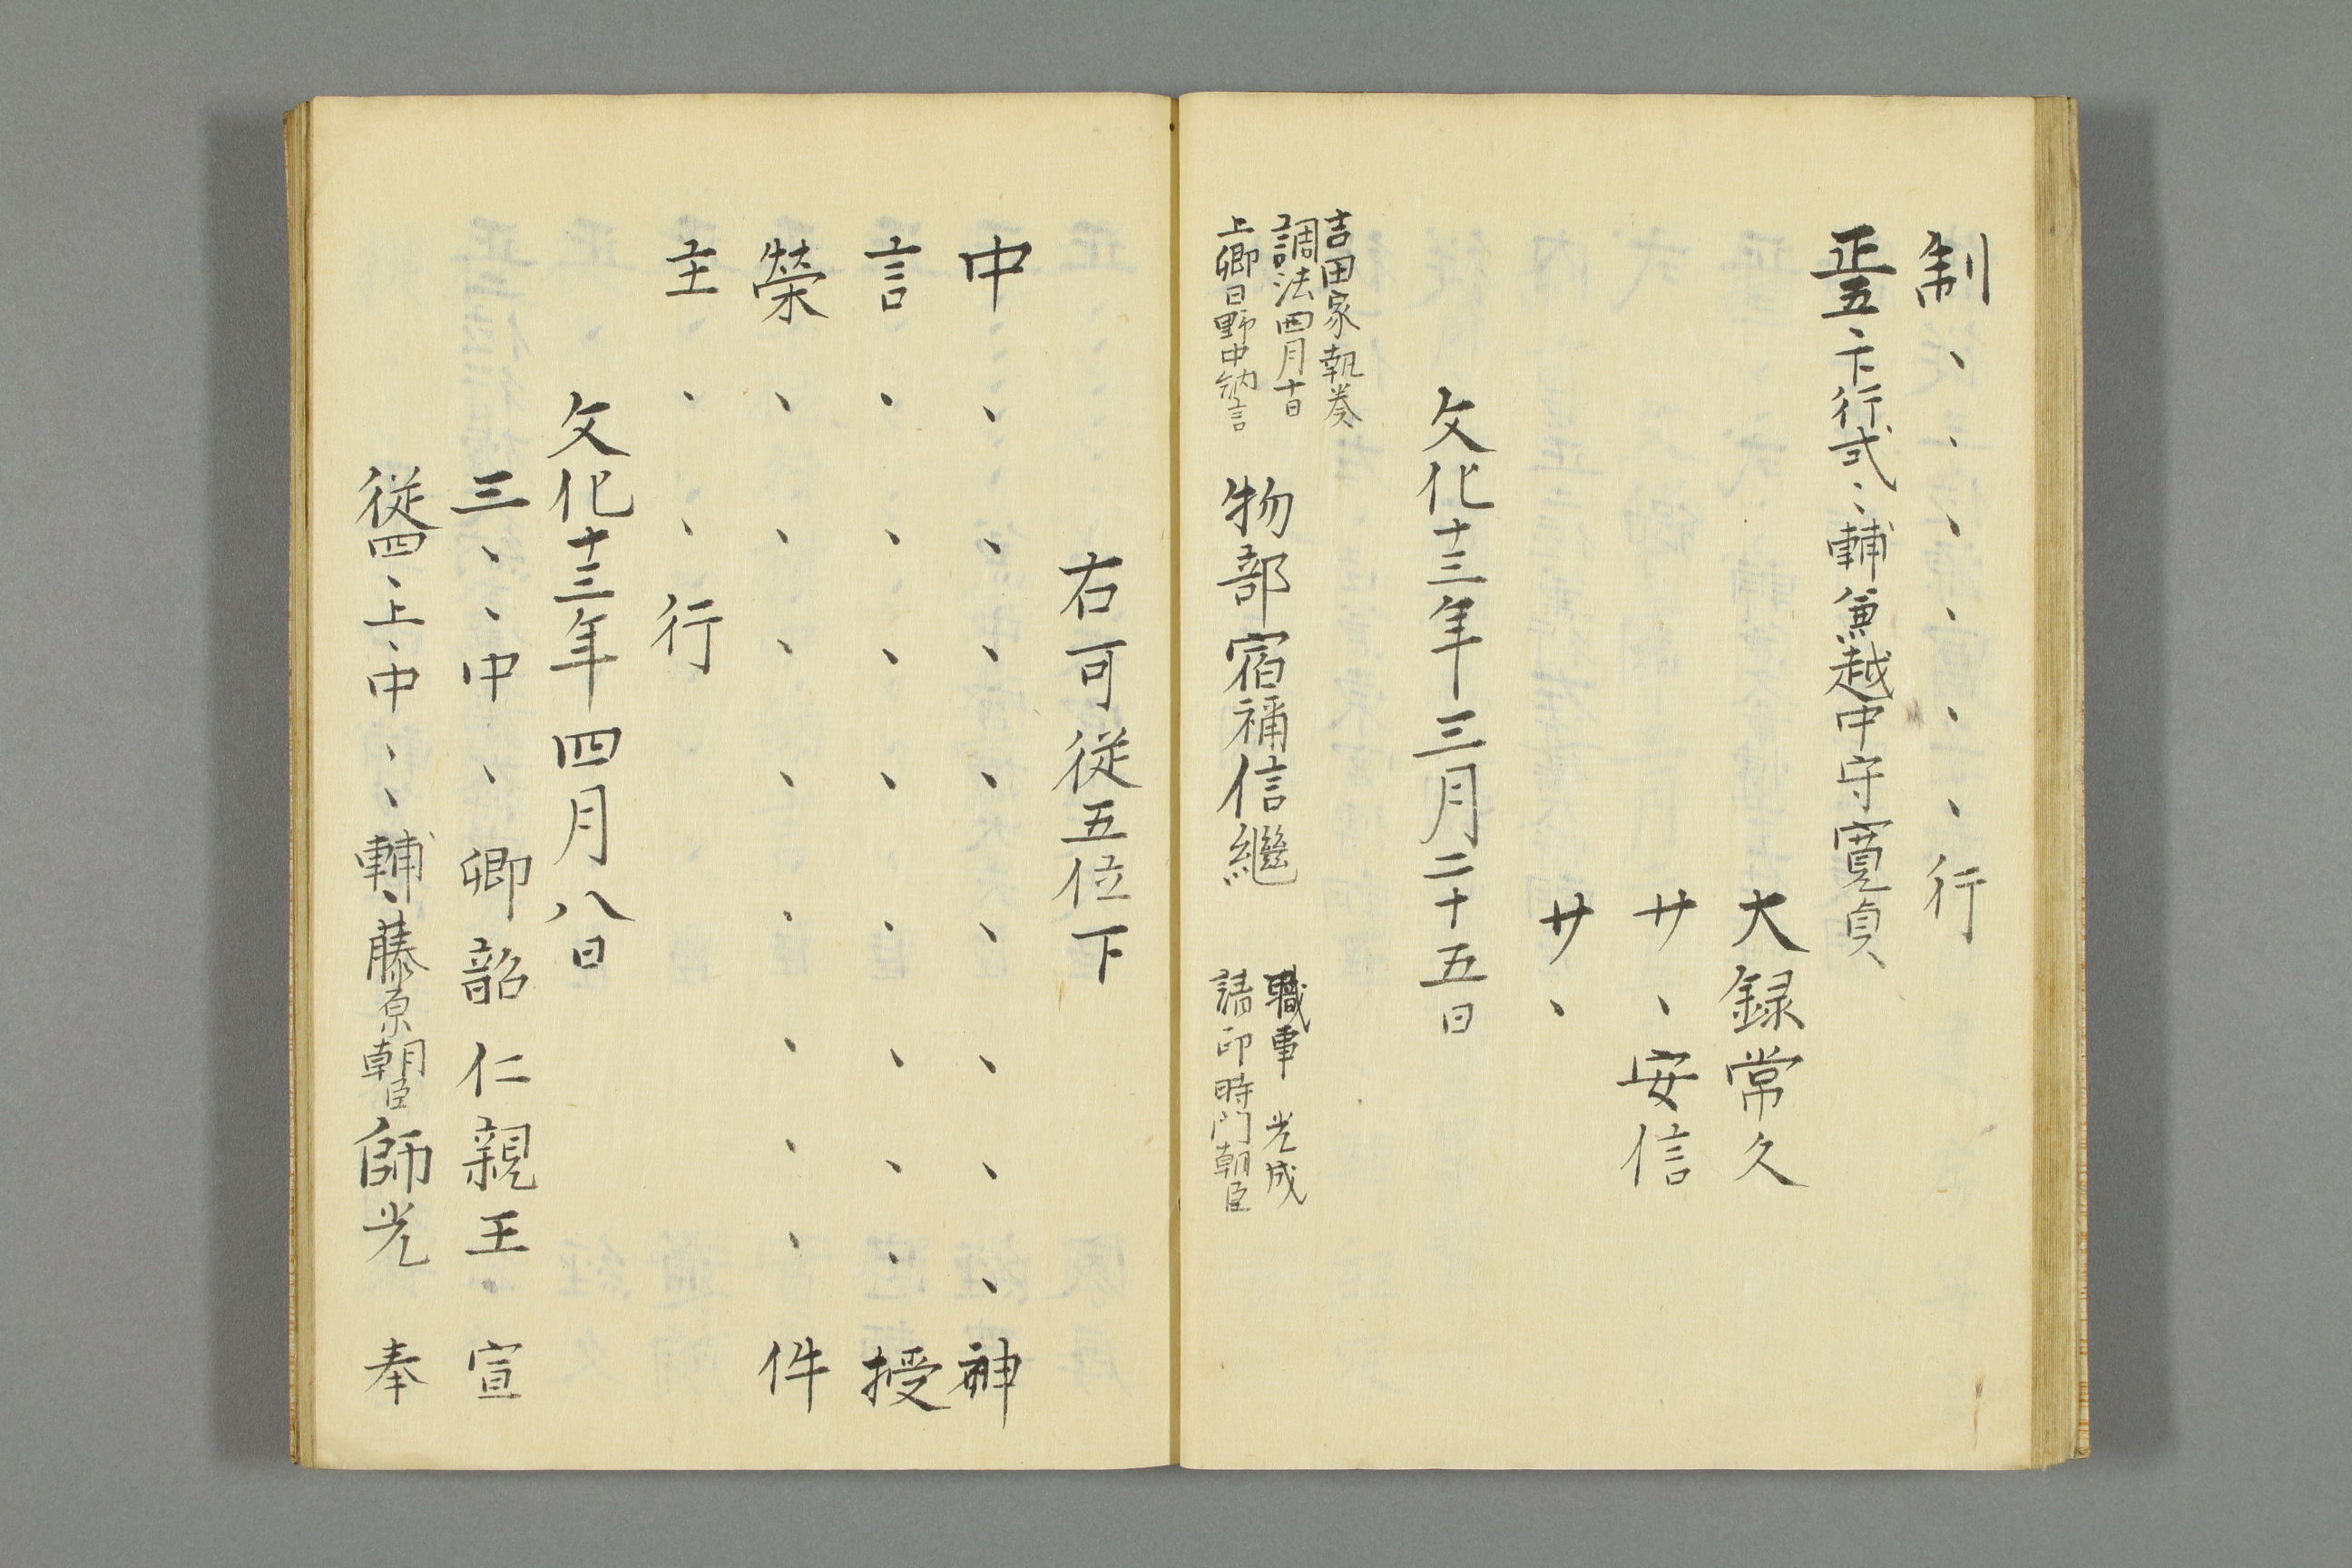 制、、、、、、行
正五、下行式、輔兼越中守寛貞
大録常久
サ、安信
サ、
文化十三年三月二十五日
吉田家執奏
調法四月十日
上卿日野中納言
物部宿禰信繼
職事 光成
請印時門朝臣
右可從五位下
中、、、、、、、、神
言、、、、、、、、授
榮、、、、、、、、件
主、、行
文化十三年四月八日
三、、中、卿韶仁親王、宣
從四、上、中、、輔、藤原朝臣師光 奉